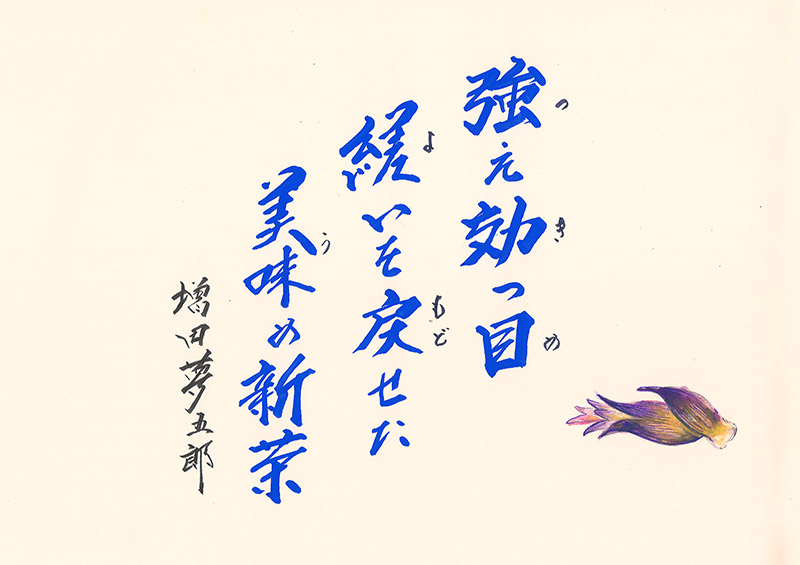 強え効っ目
つきめ
縒いを戻せた
よもど
美味め新茶
う
増田夢五郎